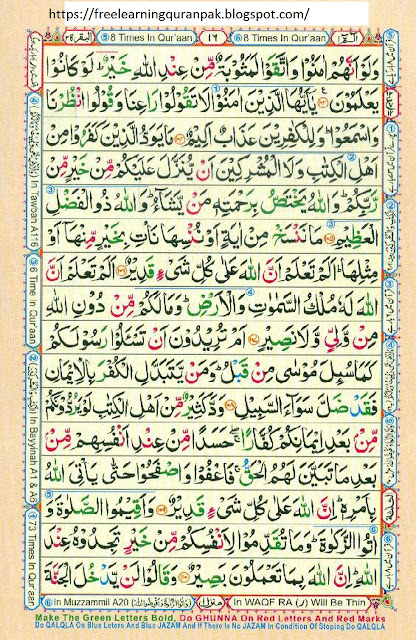 https://freelearningquranpak.blogspot.com/
8 Times In Qur'aan
١٦
8 Times In Qur'aan
الٓمّٓ ١
وَلَوْ اَنَّهُمْ اٰمَنُوْا وَاتَّقَوْا لَمَثُوْبَةٌ مِّنْ عِنْدِ اللّٰهِ خَيْرٌ ؕ لَوْ كَانُوْا
يَعْلَمُوْنَ ﴿١٠٣﴾ يٰۤاَيُّهَا الَّذِيْنَ اٰمَنُوْا لَا تَقُوْلُوْا رَاعِنَا وَقُوْلُوا انْظُرْنَا
وَاسْمَعُوْا ؕ وَلِلْكٰفِرِيْنَ عَذَابٌ اَلِيْمٌ ﴿١٠٤﴾ مَا يَوَدُّ الَّذِيْنَ كَفَرُوْا مِنْ
اَهْلِ الْكِتٰبِ وَلَا الْمُشْرِكِيْنَ اَنْ يُّنَزَّلَ عَلَيْكُمْ مِّنْ خَيْرٍ مِّنْ
رَّبِّكُمْ ؕ وَاللّٰهُ يَخْتَصُّ بِرَحْمَتِهٖ مَنْ يَّشَآءُ ؕ وَاللّٰهُ ذُو الْفَضْلِ
الْعَظِيْمِ ﴿١٠٥﴾ مَا نَنْسَخْ مِنْ اٰيَةٍ اَوْ نُنْسِهَا نَاْتِ بِخَيْرٍ مِّنْهَاۤ اَوْ
مِثْلِهَا ؕ اَلَمْ تَعْلَمْ اَنَّ اللّٰهَ عَلٰى كُلِّ شَیْءٍ قَدِيْرٌ ﴿١٠٦﴾ اَلَمْ تَعْلَمْ اَنَّ
اللّٰهَ لَهٗ مُلْكُ السَّمٰوٰتِ وَالْاَرْضِ ؕ وَمَا لَكُمْ مِّنْ دُوْنِ اللّٰهِ
مِنْ وَّلِیٍّ وَّلَا نَصِيْرٍ ﴿١٠٧﴾ اَمْ تُرِيْدُوْنَ اَنْ تَسْئَلُوْا رَسُوْلَكُمْ
كَمَا سُئِلَ مُوْسٰى مِنْ قَبْلُ ؕ وَمَنْ يَّتَبَدَّلِ الْكُفْرَ بِالْاِيْمَانِ
فَقَدْ ضَلَّ سَوَآءَ السَّبِيْلِ ﴿١٠٨﴾ وَدَّ كَثِيْرٌ مِّنْ اَهْلِ الْكِتٰبِ لَوْ يَرُدُّوْنَكُمْ
مِّنْۢ بَعْدِ اِيْمَانِكُمْ كُفَّارًا ۚ حَسَدًا مِّنْ عِنْدِ اَنْفُسِهِمْ مِّنْۢ
بَعْدِ مَا تَبَيَّنَ لَهُمُ الْحَقُّ ۚ فَاعْفُوْا وَاصْفَحُوْا حَتّٰى يَاْتِیَ اللّٰهُ
بِاَمْرِهٖ ؕ اِنَّ اللّٰهَ عَلٰى كُلِّ شَیْءٍ قَدِيْرٌ ﴿١٠٩﴾ وَاَقِيْمُوا الصَّلٰوةَ وَ
اٰتُوا الزَّكٰوةَ ؕ وَمَا تُقَدِّمُوْا لِاَنْفُسِكُمْ مِّنْ خَيْرٍ تَجِدُوْهُ عِنْدَ
اللّٰهِ ؕ اِنَّ اللّٰهَ بِمَا تَعْمَلُوْنَ بَصِيْرٌ ﴿١١٠﴾ وَقَالُوْا لَنْ يَّدْخُلَ الْجَنَّةَ
In Tawbah A116
6 Time In Qur'aan
In Bayyinah A1 & A6
73 Times In Qur'aan
In Muzzammil A20
منزل ١
In WAQF RA (ر) Will Be Thin
Make The Green Letters Bold, Do GHUNNA On Red Letters And Red Marks
Do QALQLA On Blue Leters And Blue JAZAM And If There Is No JAZAM In Condition Of Stoping Do QALQLA